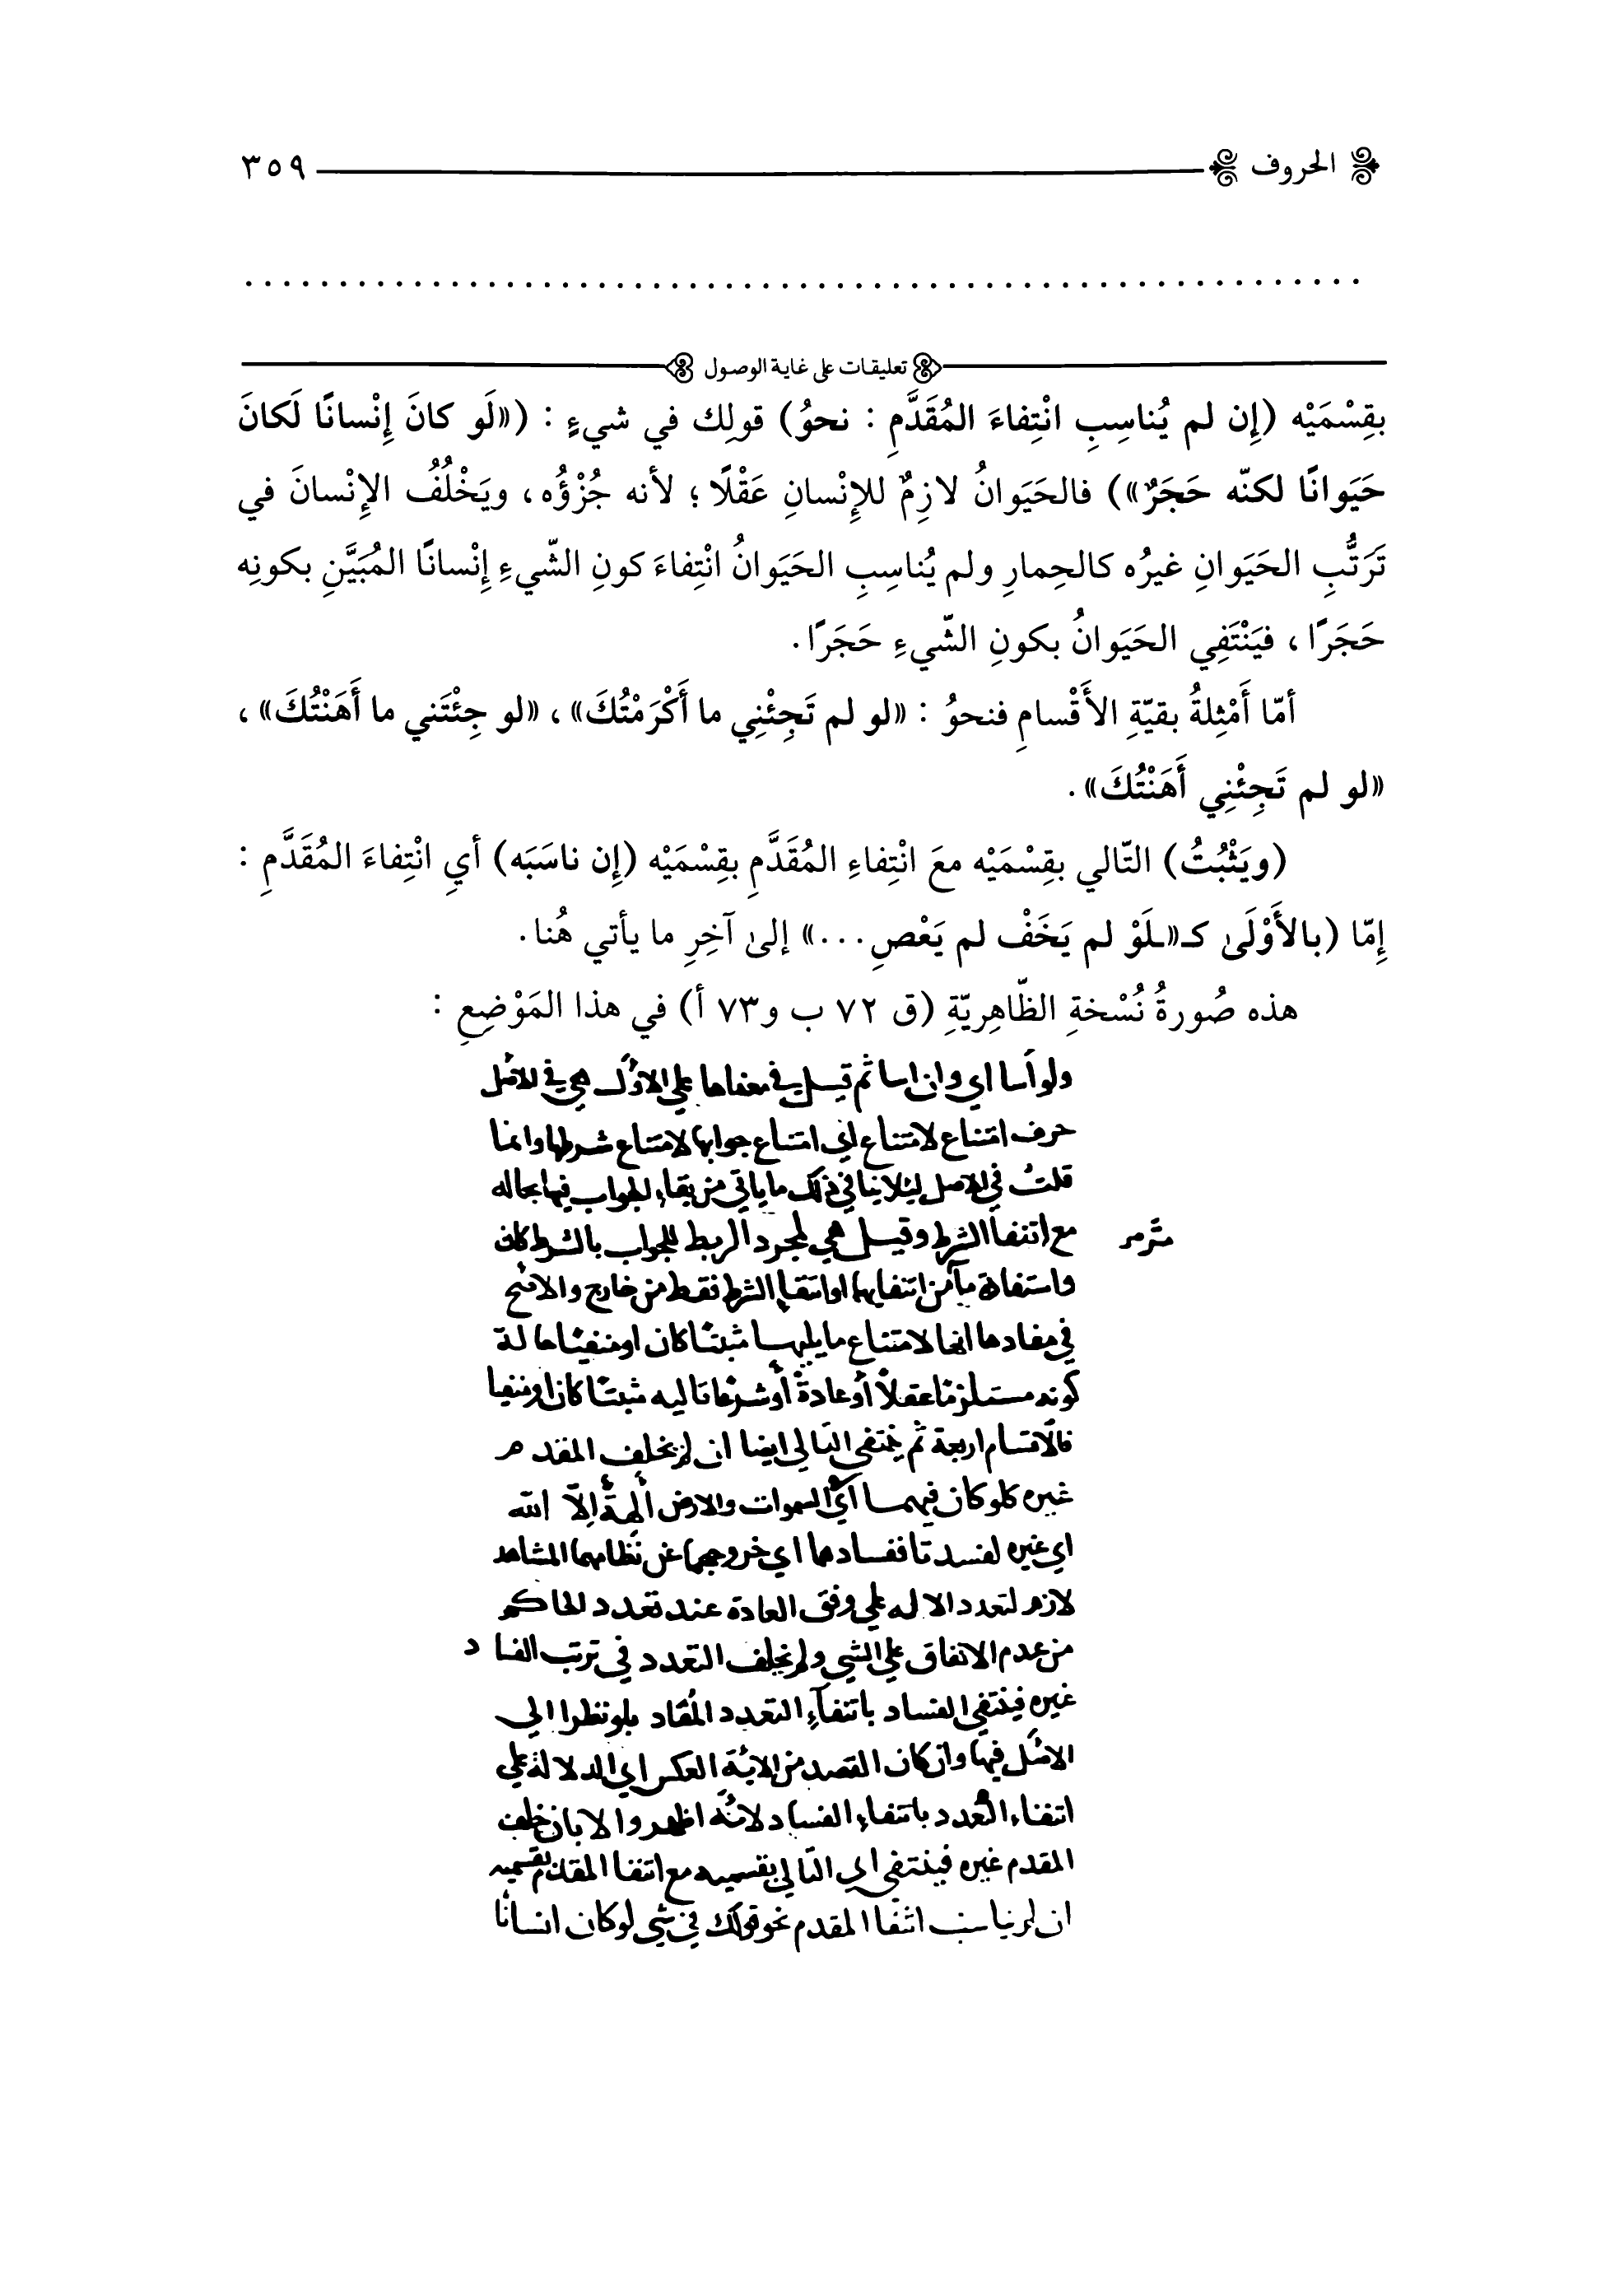 الحروف ٣٥٩
تعليقات على غاية الوصول
بقِسْمَيْه (إِن لم يُناسِبِ انْتِفاءَ المُقَدَّمِ : نحوُ) قولِك في شيءٍ : («لَو كانَ إِنْسانًا لَكانَ
حَيَوانًا لكنّه حَجَرٌ») فالحَيَوانُ لازِمٌ للإِنْسانِ عَقْلًا ؛ لأنه جُزْؤُه ، ويَخْلُفُ الإِنْسانَ في
تَرَتُّبِ الحَيَوانِ غيرُه كالحِمارِ ولم يُناسِبِ الحَيَوانُ انْتِفاءَ كونِ الشّيءِ إِنْسانًا المُبَيَّنِ بكونِه
حَجَرًا ، فيَنْتَفِي الحَيَوانُ بكونِ الشّيءِ حَجَرًا .
أمّا أَمْثِلةُ بقيّةِ الأَقْسامِ فنحوُ : «لو لم تَجِئْنِي ما أَكْرَمْتُكَ» ، «لو جِئْتَني ما أَهَنْتُكَ» ،
«لو لم تَجِئْنِي أَهَنْتُكَ» .
(ويَثْبُتُ) التّالي بقِسْمَيْه معَ انْتِفاءِ المُقَدَّمِ بقِسْمَيْه (إِن ناسَبَه) أيِ انْتِفاءَ المُقَدَّمِ :
إِمّا (بالأَوْلَىٰ كـ«ـلَوْ لم يَخَفْ لم يَعْصِ ...» إلىٰ آخِرِ ما يأتي هُنا .
هذه صُورةُ نُسْخةِ الظّاهِريّةِ (ق ٧٢ ب و٧٣ أ) في هذا المَوْضِعِ :
ولو أسا اي وان اسا ثم قيل في معناها علي الاول هي في الاصل
حرف امتناع لامتناع اي امتناع جوابها لامتناع شرطها وانما
قلت في الاصل لئلا ينافي ذلك ما ياتي من بقاء الجواب فيها بحاله
مع انتفا الشرط وقيل هي لمجرد الربط للجواب بالشرط كان
واستفادة مآمن انتفايهما او انتفا الشرط فقط من خارج والاصح
في مفادها انها لامتناع ما يليها مثبتا كان او منفيا حالة
كونه مستلزما عقلا أو عادة أو شرعا تاليه مثبتا كان او منفيا
فالاقسام اربعة ثم ينتفي التالي ايضا ان لم يخلف المقدم
غيره كلو كان فيهما اي السموات والارض ألهة إلا الله
اي غيره لفسدتا ففسادهما اي خروجهما عن نظامهما المشاهد
لازم لتعدد الاله علي وفق العادة عند تعدد الحاكم
من عدم الاتفاق علي الشي ولم يخلف التعدد في ترتب الفساد
غيره فينتفي الفساد بانتفآء التعدد المفاد بلو نظرا الي
الاصل فيها وان كان القصد من الاية العكس اي الدلالة علي
انتفاء التعدد بانتفاء الفساد لانه اظهر والا بان خلف
المقدم غيره فينتفي اي التالي بقسميه مع انتفا المقدم بقسميه
ان لم يناسب انتفا المقدم نحو قولك في شي لو كان انسانا